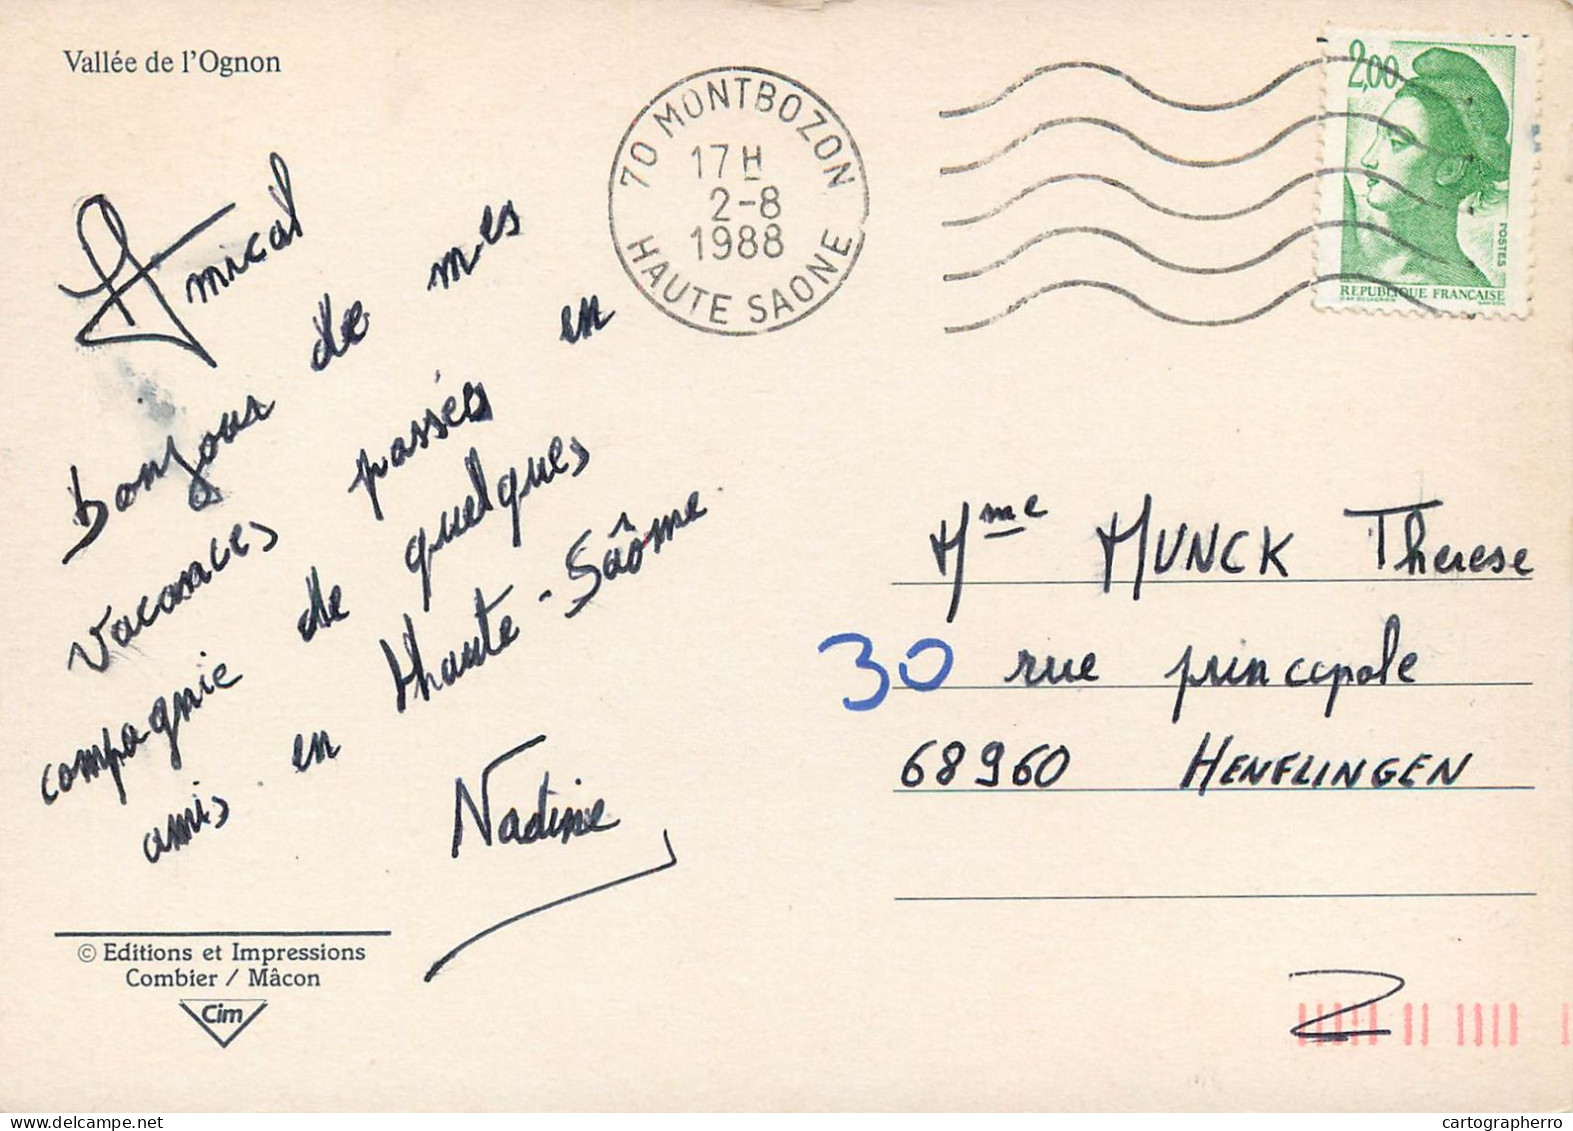 Vallée de l'Ognon
70 MONTBOZON
17 H
2-8
1988
HAUTE SAONE
2,00
POSTES
REPUBLIQUE FRANÇAISE
Amical
Bonjour de mes
vacances passées en
compagnie de quelques
amis en Haute-Saône.
Nadine
Mme MUNCK Therese
30 rue principale
68960 HENFLINGEN
© Editions et Impressions
Combier / Mâcon
Cim
cartographerro